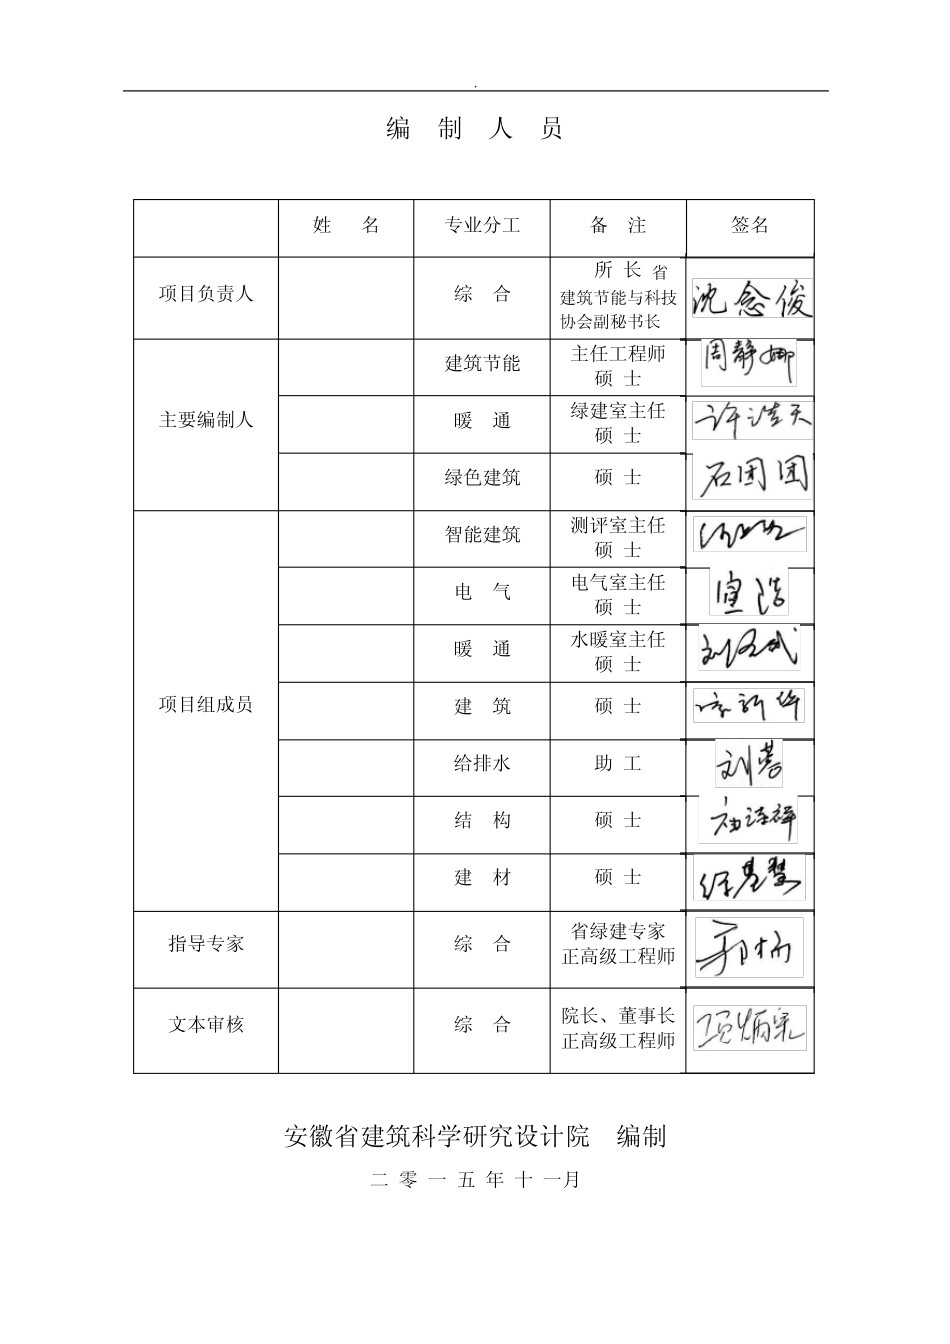 编 制 人 员
姓 名 专业分工 备 注 签名
项目负责人 综 合 所 长 省
建筑节能与科技
协会副秘书长
沈念俊
主要编制人
建筑节能 主任工程师
硕 士
周静娜
暖 通 绿建室主任
硕 士
许浩天
绿色建筑 硕 士 石团团
项目组成员
智能建筑 测评室主任
硕 士
电 气 电气室主任
硕 士
宣浩
暖 通 水暖室主任
硕 士
建 筑 硕 士
给排水 助 工
结 构 硕 士
建 材 硕 士
指导专家 综 合 省绿建专家
正高级工程师
文本审核 综 合 院长、董事长
正高级工程师
项炳泉
安徽省建筑科学研究设计院 编制
二 零 一 五 年 十 一月